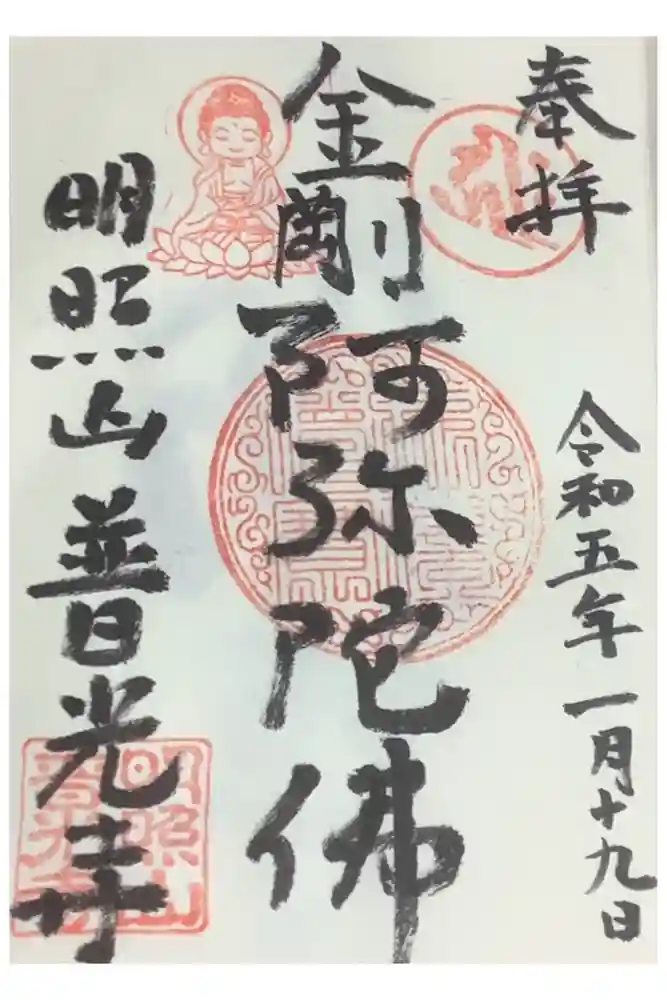 奉拝
令和五年一月十九日
金剛阿弥陀佛
明照山普光寺
明照山
普光寺